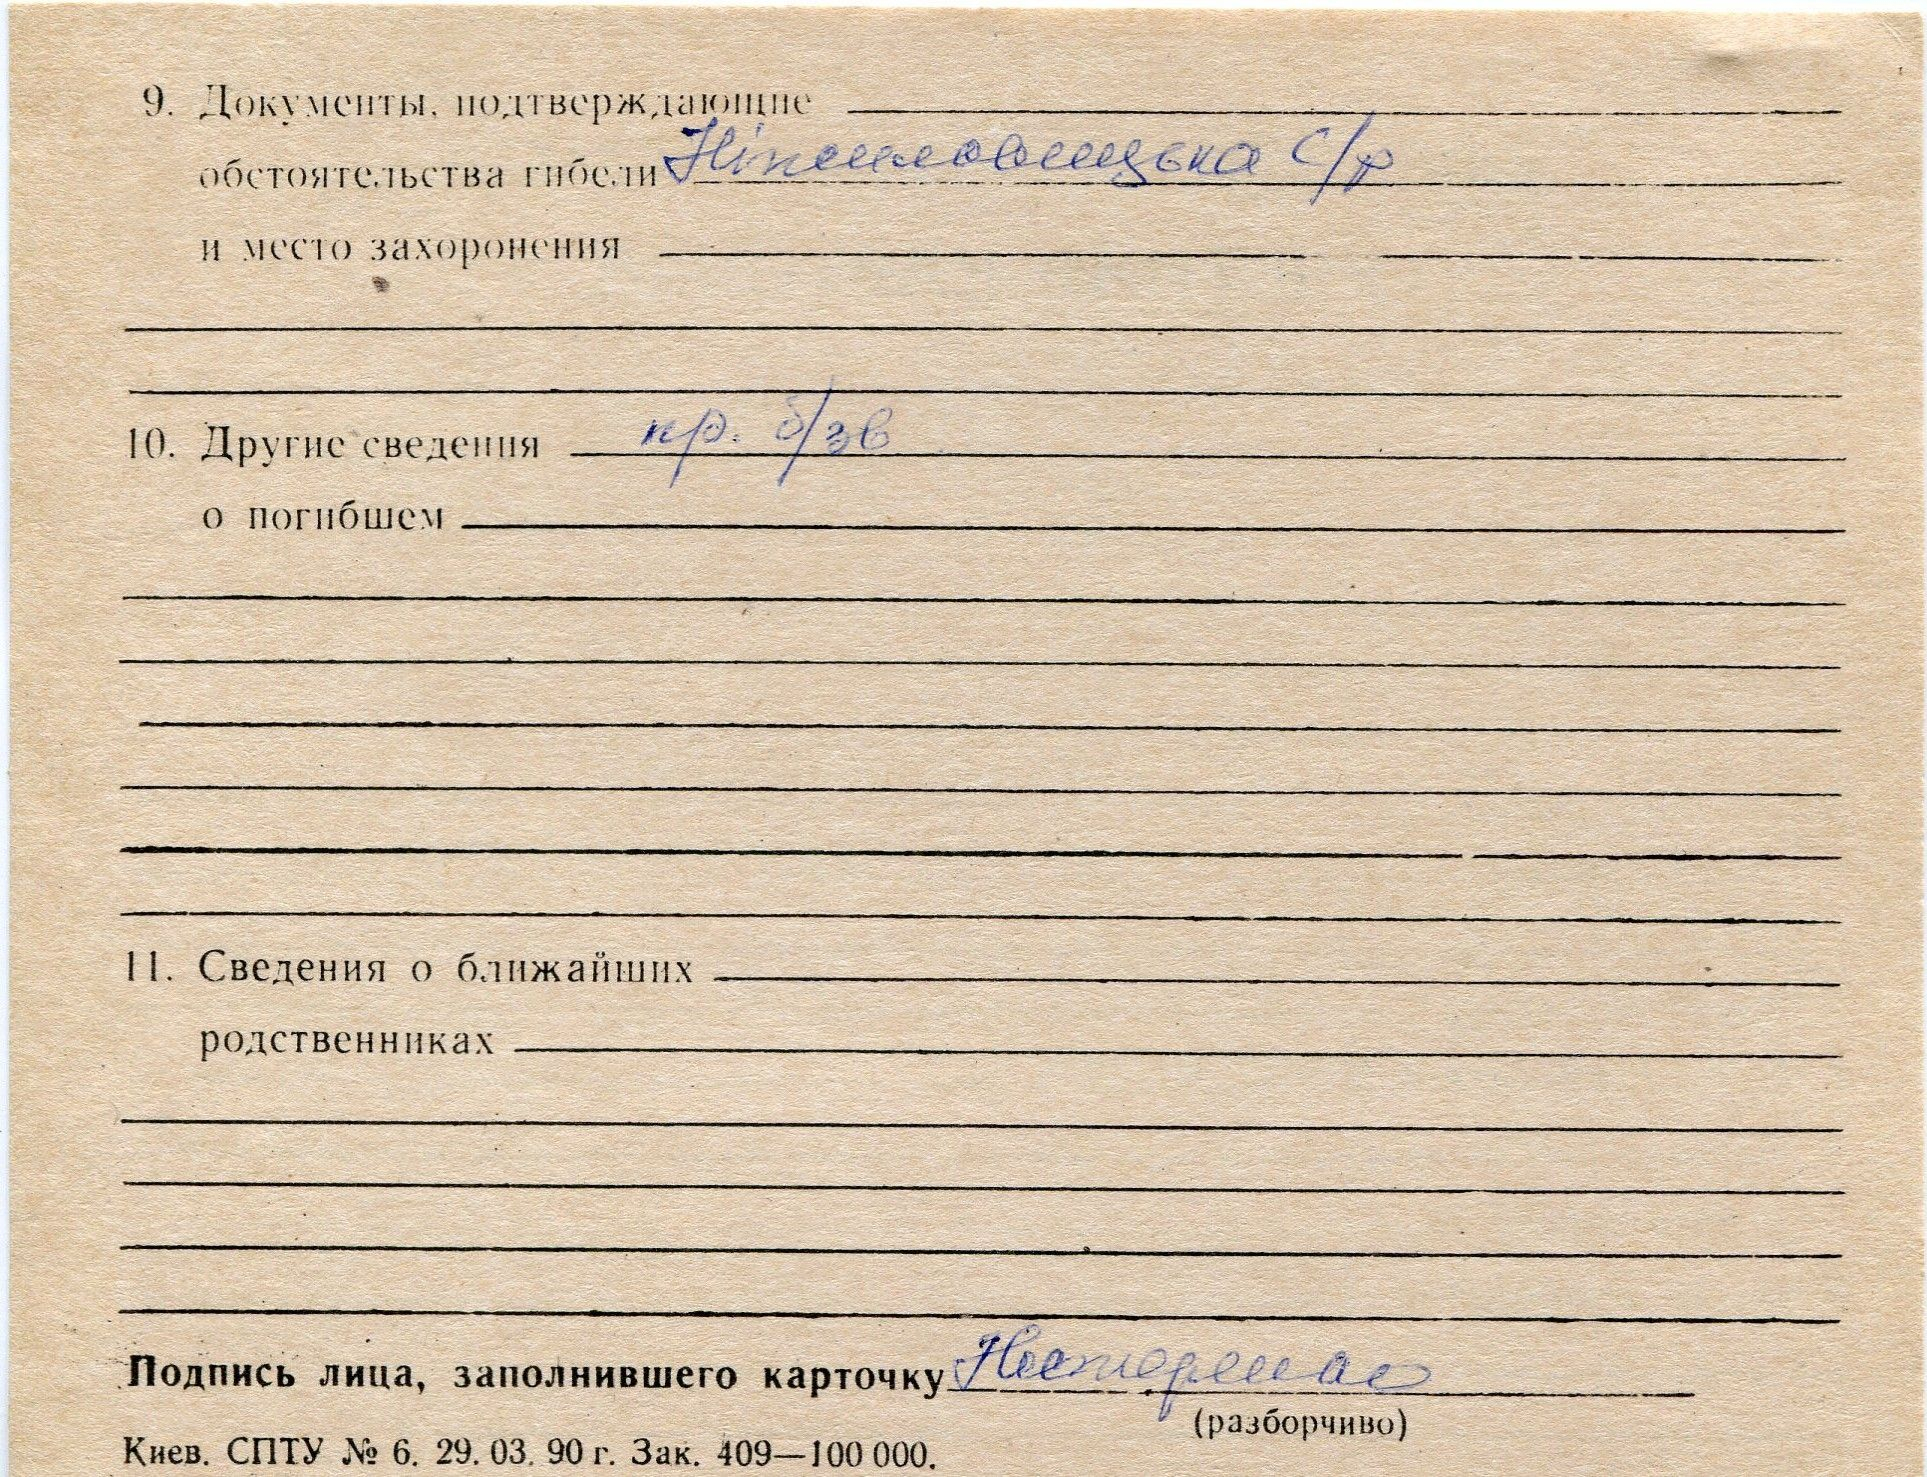 9. Документы, подтверждающие
обстоятельства гибели с/р
и место захоронения
10. Другие сведения кр. б/зв
о погибшем
11. Сведения о ближайших
родственниках
Подпись лица, заполнившего карточку
(разборчиво)
Киев. СПТУ № 6. 29. 03. 90 г. Зак. 409—100 000.